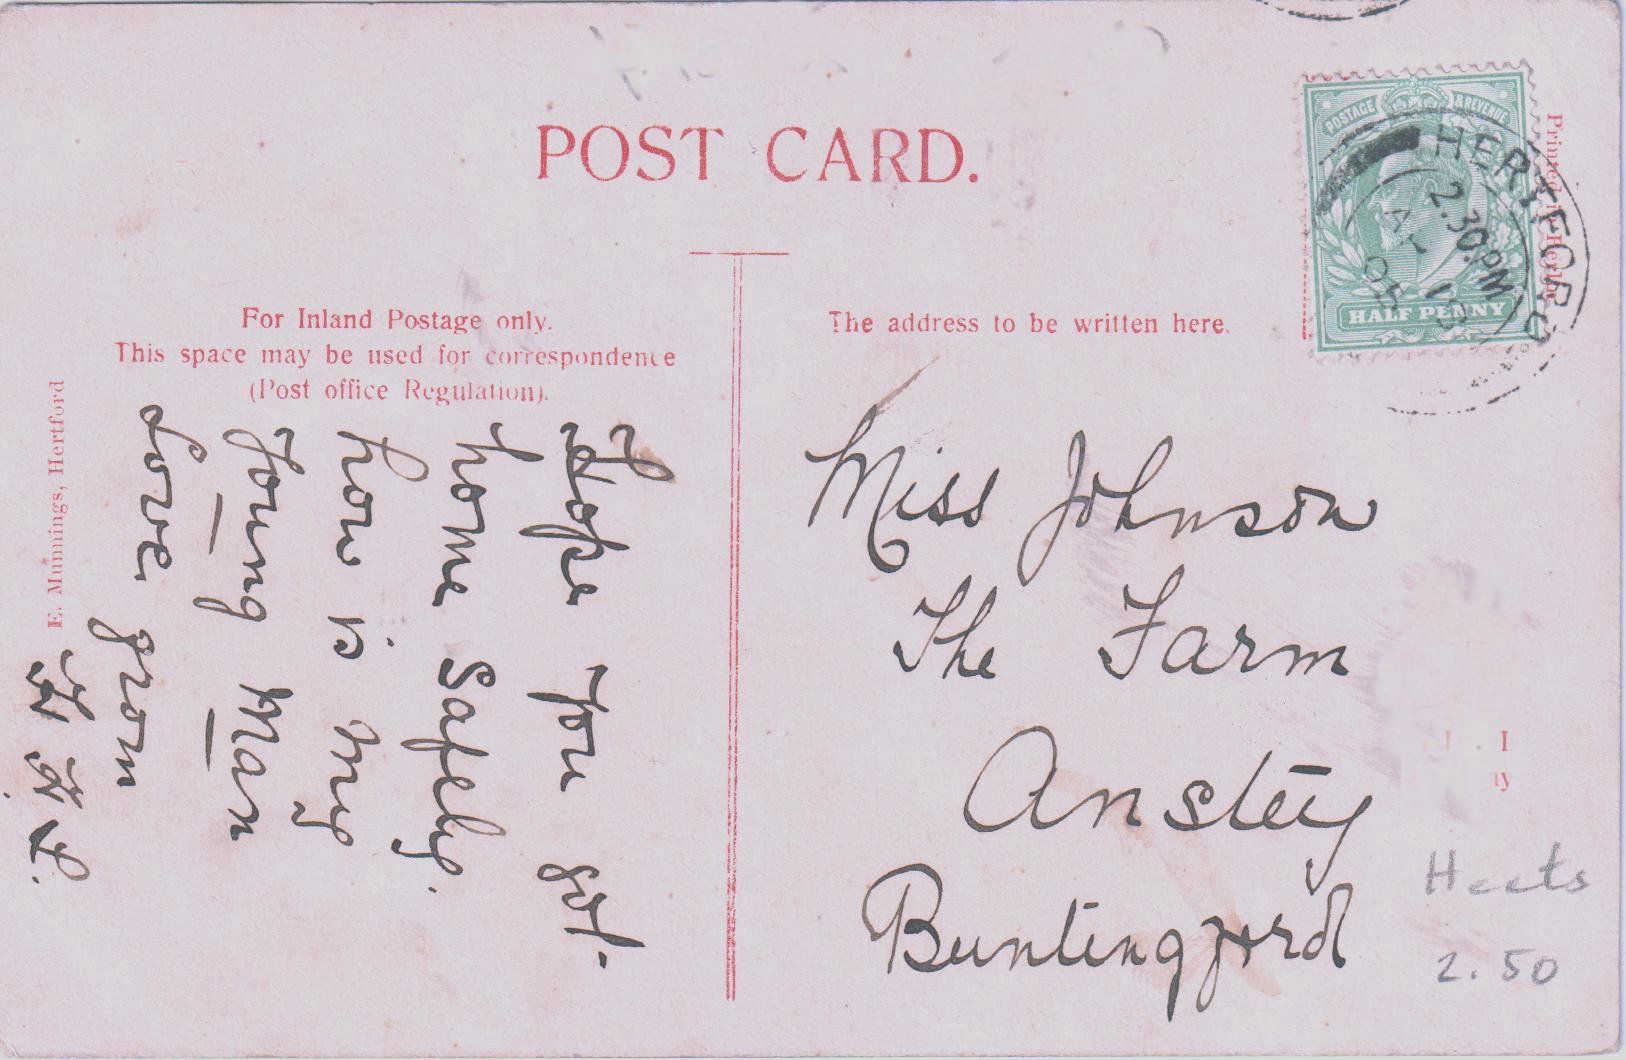 POST CARD.
For Inland Postage only.
This space may be used for correspondence
(Post office Regulation).
The address to be written here.
E. Munnings, Hertford
POSTAGE & REVENUE
HALF PENNY
HERTFORD
2.30 PM
05
Hope you got
home Safely.
how is my
Young Man
Love from
Miss Johnson
The Farm
Anstey
Buntingford
Herts
2.50